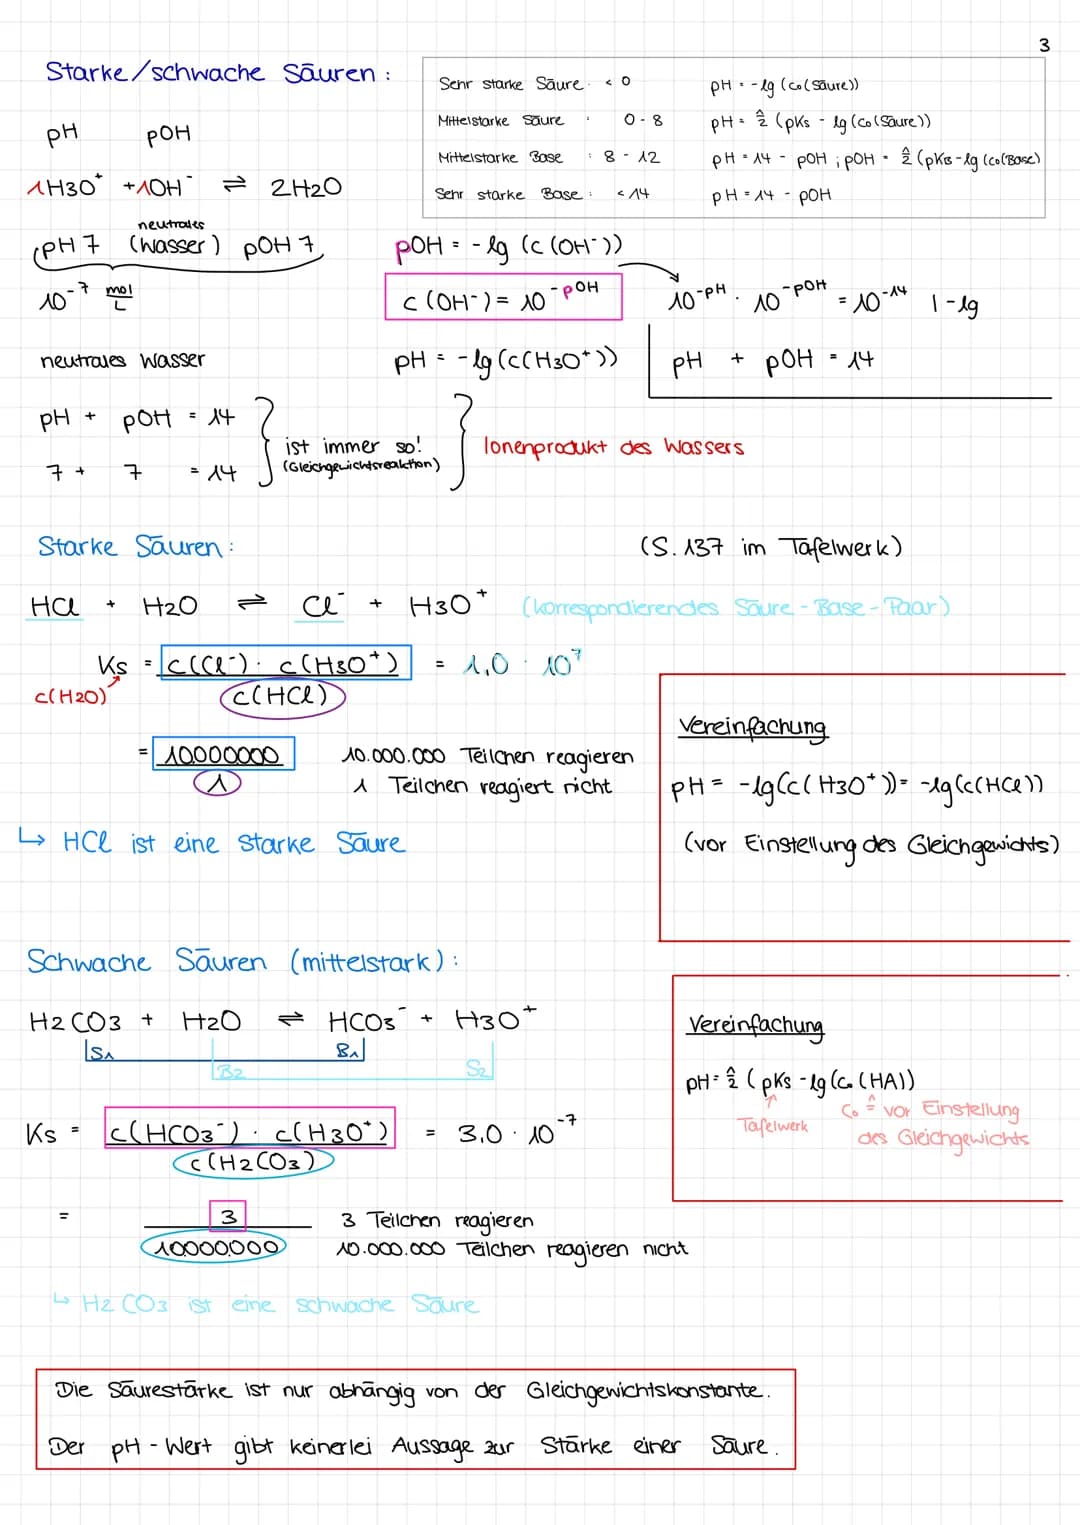 3
Starke/schwache Säuren:
Sehr starke Säure: < 0 pH = -lg (c₀(Säure))
Mittelstarke Säure : 0 - 8 pH = ½ (pKs - lg (c₀(Säure))
Mittelstarke Base : 8 - 12 pH = 14 - pOH ; pOH = ½ (pKB - lg (c₀(Base)
Sehr starke Base : < 14 pH = 14 - pOH
pH pOH
1H3O⁺ + 1OH⁻ ⇌ 2H2O
neutrales
pH 7 (Wasser) pOH 7
10⁻⁷ mol/L
pOH = -lg (c(OH⁻))
c(OH⁻) = 10^-pOH
10^-pH · 10^-pOH = 10⁻¹⁴ | -lg
neutrales Wasser
pH = -lg (c(H3O⁺))
pH + pOH = 14
pH + pOH = 14
7 + 7 = 14
ist immer so!
(Gleichgewichtsreaktion)
Ionenprodukt des Wassers
Starke Säuren:
(S. 137 im Tafelwerk)
HCl + H2O ⇌ Cl⁻ + H3O⁺ (korrespondierendes Säure-Base-Paar)
Ks = c(Cl⁻) · c(H3O⁺) = 1,0 · 10⁷
c(H2O)
c(HCl)
= 10000000 10.000.000 Teilchen reagieren
1 1 Teilchen reagiert nicht
↳ HCl ist eine starke Säure
Vereinfachung
pH = -lg(c(H3O⁺)) = -lg(c(HCl))
(vor Einstellung des Gleichgewichts)
Schwache Säuren (mittelstark):
H2CO3 + H2O ⇌ HCO3⁻ + H3O⁺
S1 B1
B2 S2
Ks = c(HCO3⁻) · c(H3O⁺) = 3,0 · 10⁻⁷
c(H2CO3)
= 3 3 Teilchen reagieren
10000000 10.000.000 Teilchen reagieren nicht
↳ H2CO3 ist eine schwache Säure
Vereinfachung
pH = ½ (pKs - lg (c₀(HA))
Tafelwerk
c₀ ≙ vor Einstellung
des Gleichgewichts
Die Säurestärke ist nur abhängig von der Gleichgewichtskonstante.
Der pH-Wert gibt keinerlei Aussage zur Stärke einer Säure.